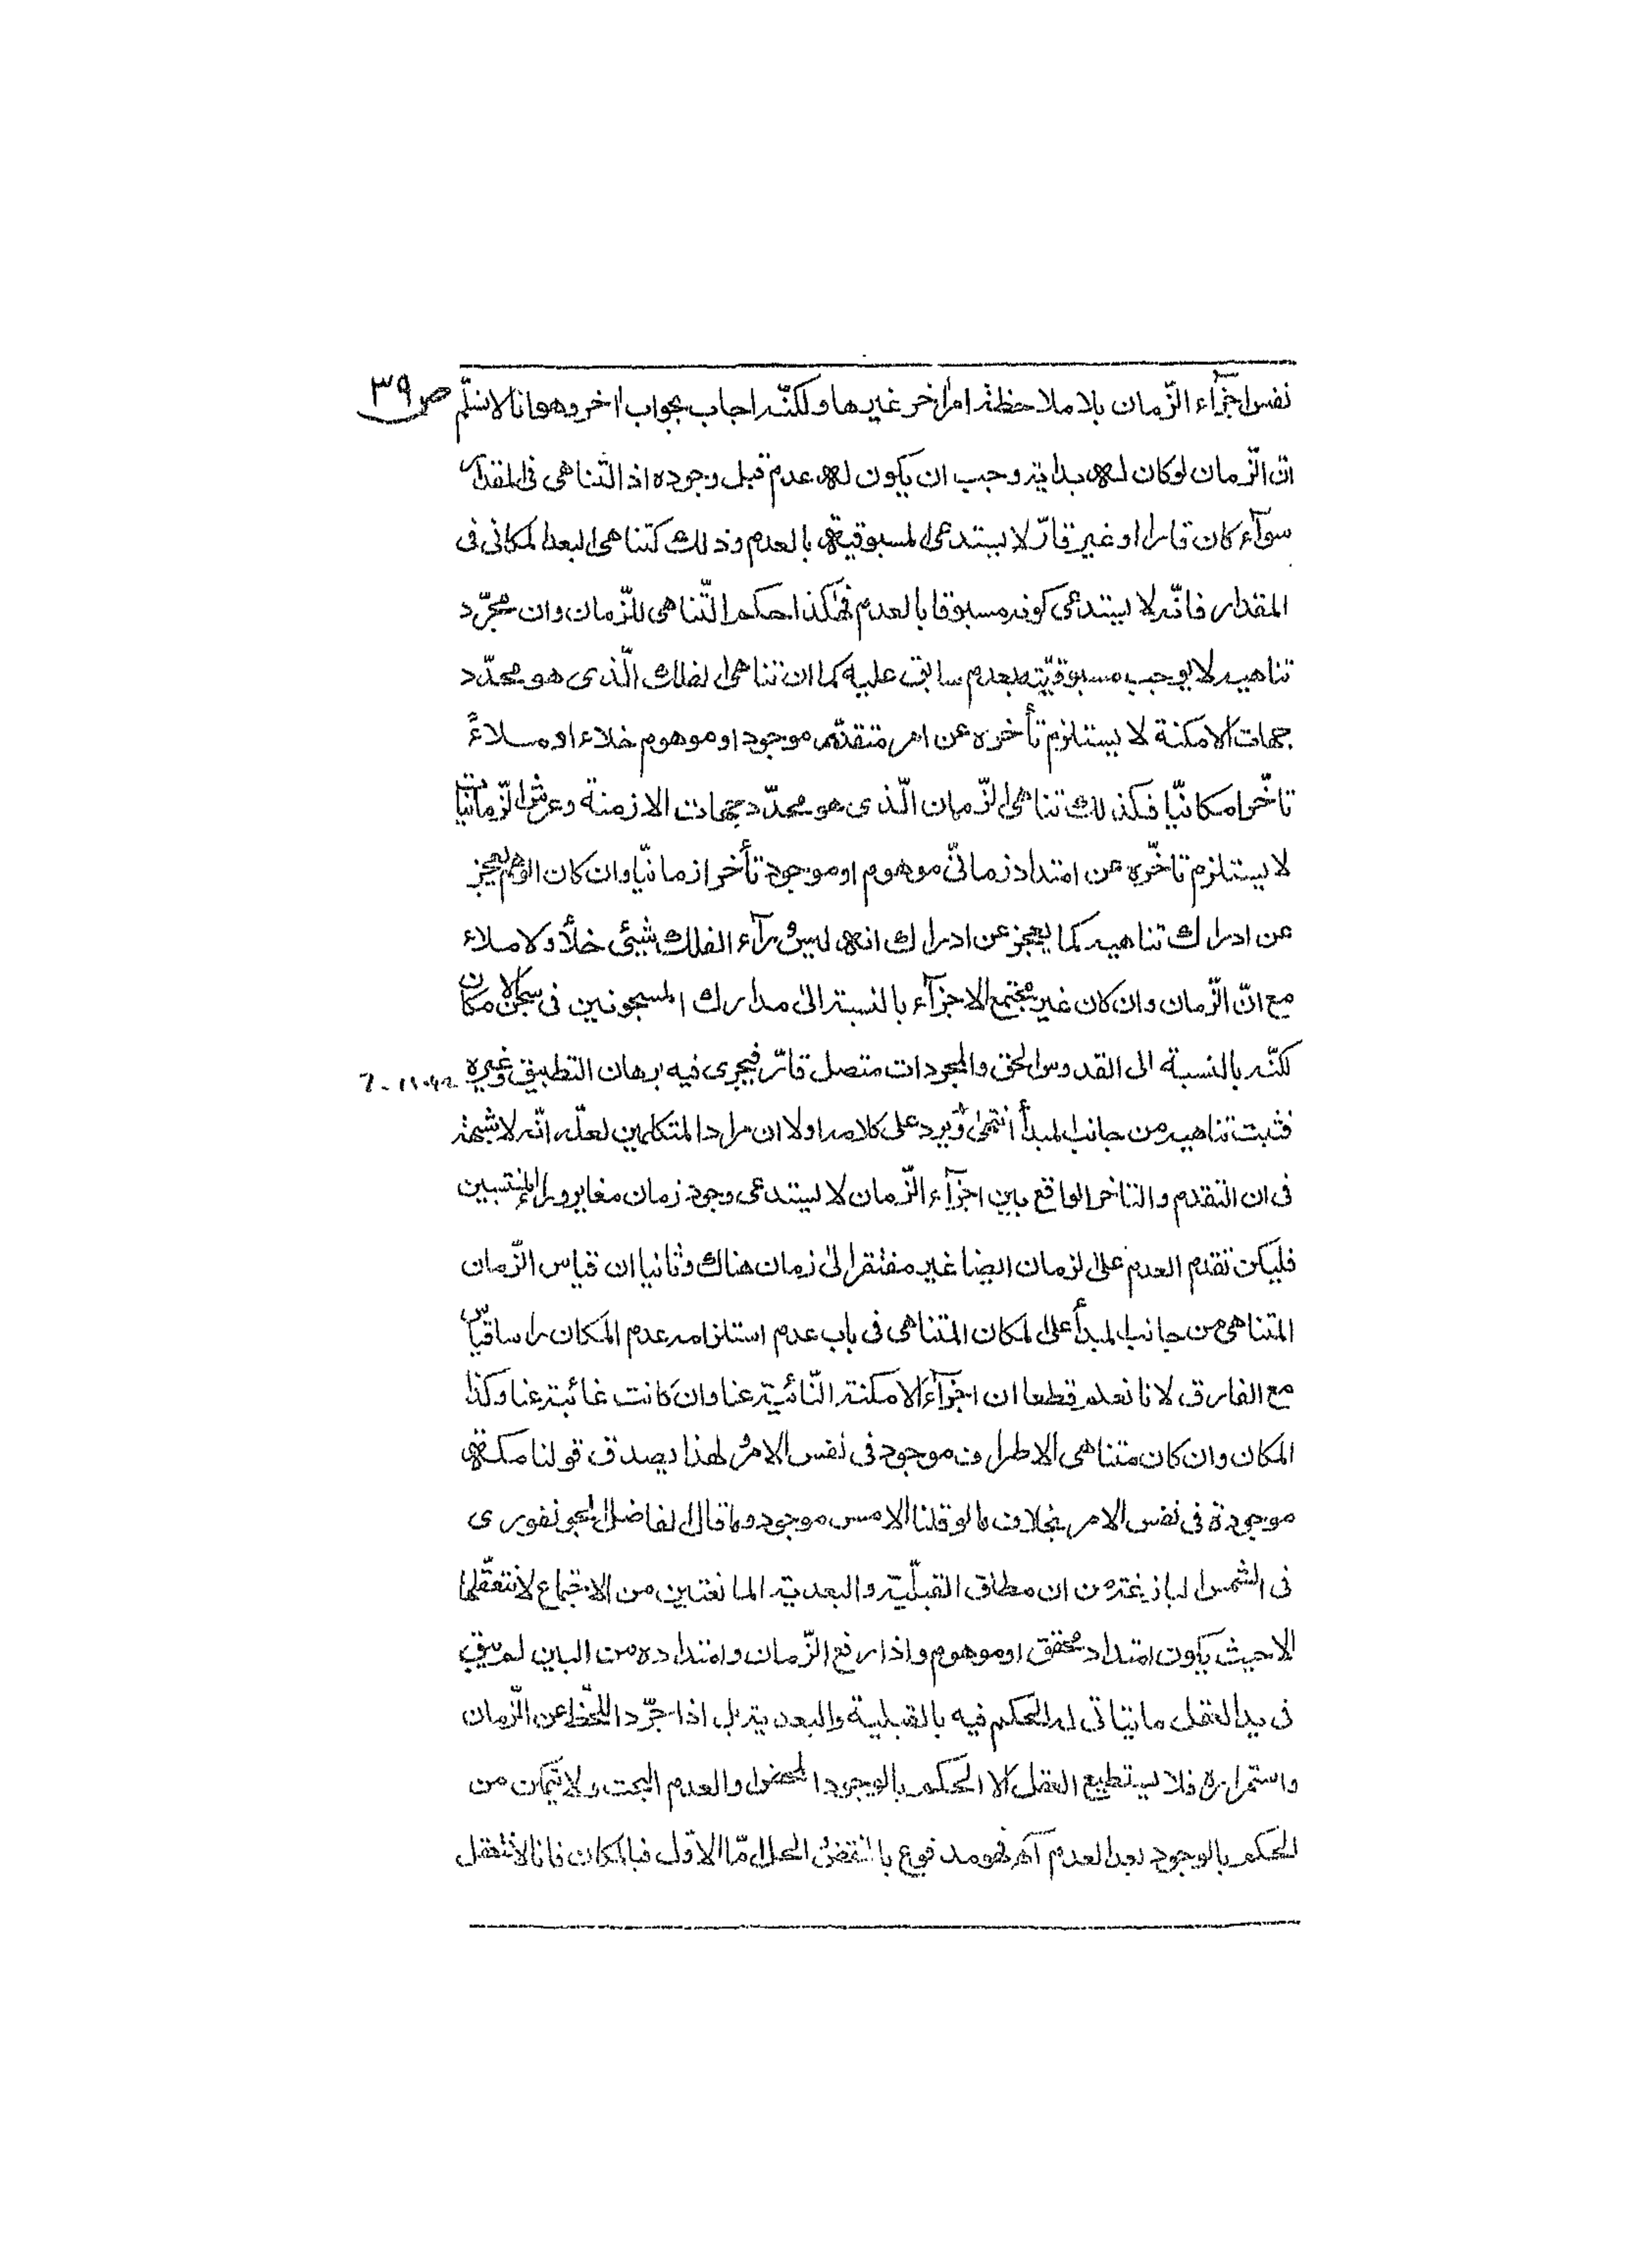 ص ٣٩
نفس اجزآء الزّمان بلا ملاحظة امر اٰخر غيرها ولكنّه اجاب بجواب اٰخر وهو انا لا نسلّم
ان الزّمان لو كان له بداية وجب ان يكون له عدم قبل وجوده اذ التّناهى فى المقدار
سوآء كان قارا او غير قارّ لا يستدعى المسبوقية بالعدم وذلك كتناهى البعد المكانى فى
المقدار فانّه لا يستدعى كونه مسبوقا بالعدم فهكذا حكم التّناهى للزّمان وان مجرّد
تناهيه لا يوجب مسبوقيّته بعدم سابق عليه كما ان تناهى الفلك الّذى هو محدّد
جهات الامكنة لا يستلزم تأخره عن امر متقدّم موجود او موهوم خلاء او ملاءً
تاخّرا مكانيّا فكذلك تناهى الزّمان الّذى هو محدّد جهات الازمنة وعرش الزّمانيّات
لا يستلزم تاخّره عن امتداد زمانىّ موهوم او موجود تأخرا زمانيّا وان كان الوهم يعجز
عن ادراك تناهيه كما يعجز عن ادراك انه ليس ورآء الفلك شيئى خلأ ولا ملاء
مع انّ الزّمان وان كان غير مجتمع الاجزآء بالنسبة الى مدارك المسجونين فى سجن الامكان
لكنّه بالنسبة الى القدوس الحق والمجردات متصل قارّ فيجرى فيه برهان التطبيق وغيره
فثبت تناهيه من جانب المبدأ انتهى ويرد على كلامه اولا ان مراد المتكلمين لعلّه انّه لا شبهة
فى ان التقدم والتاخر الواقع بين اجزآء الزّمان لا يستدعى وجود زمان مغاير وراء المنتسبين
فليكن تقدم العدم على الزمان ايضا غير مفتقر الى زمان هناك وثانيا ان قياس الزّمان
المتناهى من جانب المبدأ على المكان المتناهى فى باب عدم استلزامه عدم المكان راسا قياس
مع الفارق لانا نعلم قطعا ان اجزآء الامكنة النّائية عنا وان كانت غائبة عنا وكذا
المكان وان كان متناهى الاطراف موجود فى نفس الامر ولهذا يصدق قولنا مكة
موجودة فى نفس الامر بخلاف ما لو قلنا الامس موجود وما قال الفاضل الجونفورى
فى الشمس البازغة من ان مطلق القبليّة والبعدية المانعتين من الاجتماع لا نتعقّلها
الا حيث يكون امتداد محقق او موهوم واذا رفع الزّمان وامتداده من البين لم يبق
فى يد العقل ما يتاتى له الحكم فيه بالقبلية والبعدية بل اذا جرّد اللّحظ عن الزّمان
واستمراره فلا يستطيع العقل الا الحكم بالوجود المحض والعدم البحت ولا يتمكن من
الحكم بالوجود بعد العدم آه فهو مدفوع بالنقض والحل امّا الاوّل فبالمكان فانا لا نتعقل